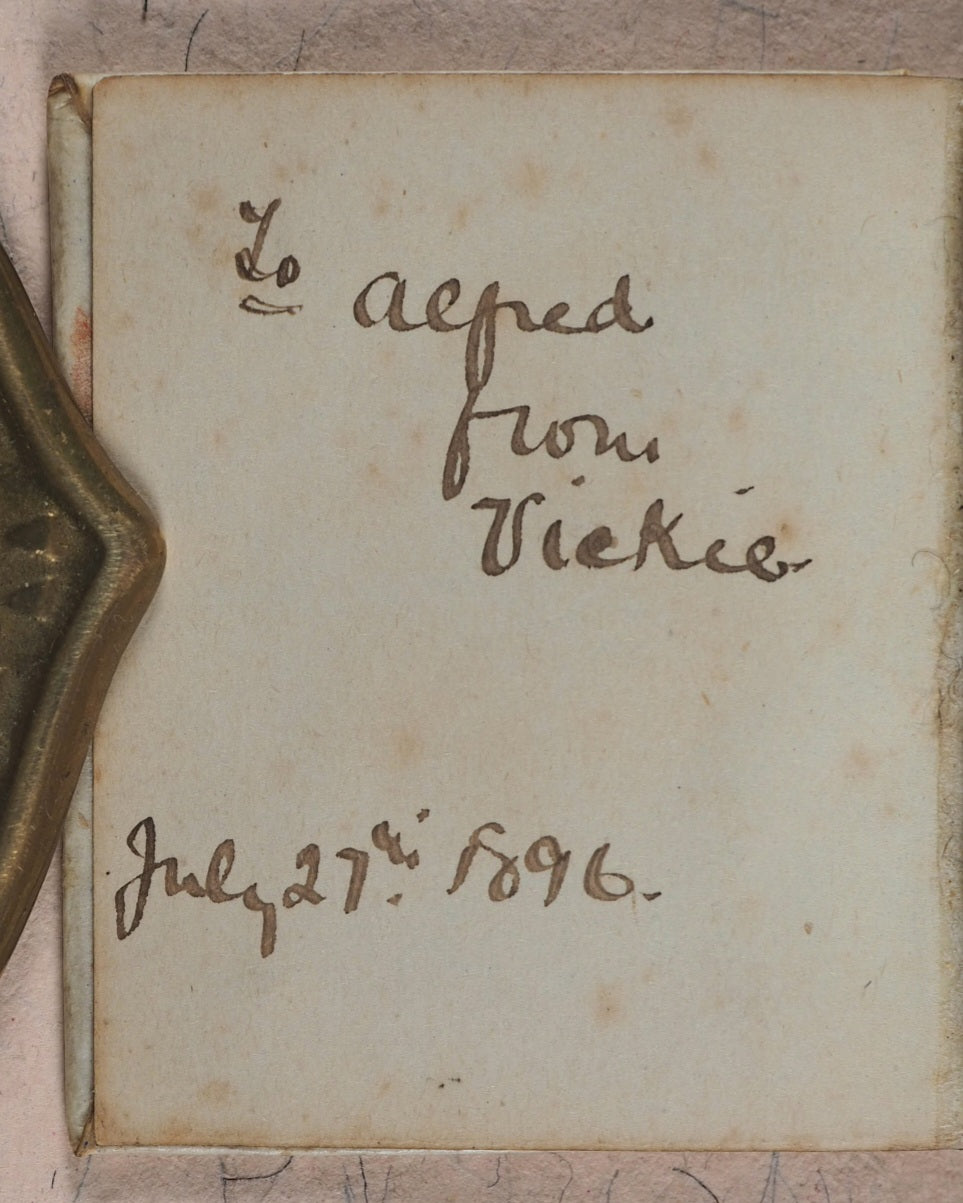 To Alfred
from
Vickie
July 27th. 1896.